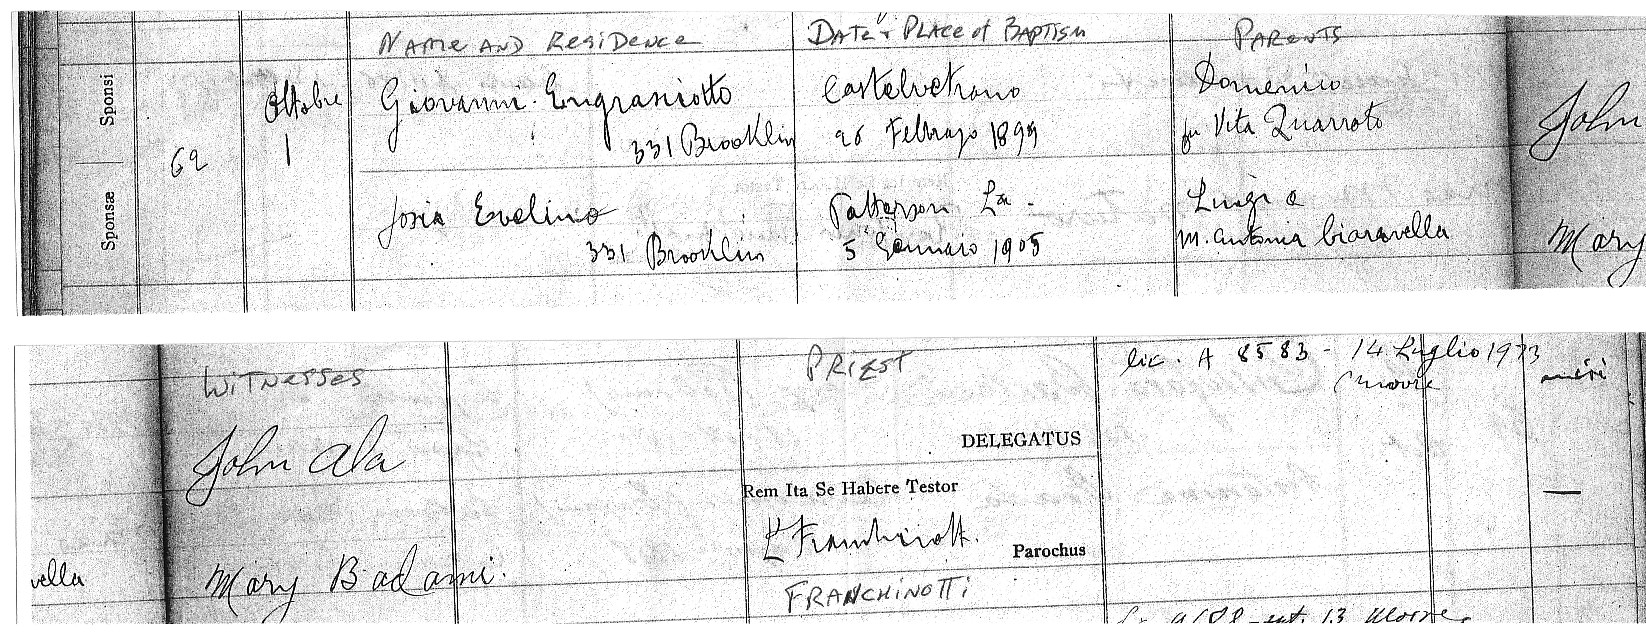 NAME AND RESIDENCE
DATE & PLACE of BAPTISM
PARENTS
Sponsi
Ottobre
1
62
Giovanni Engrasciotto
331 Brooklin
Castelvetrano
26 Febbrajo 1899
Domenico
fu Vita Quarroto
John
Sponsæ
Josia Evelino
331 Brooklin
Patterson La.
5 Gennaio 1905
Luigi e
M. Antonia Ciaravella
Mary
WITNESSES
PRIEST
lic. A 8583 - 14 Luglio 1923
John Ala
DELEGATUS
Rem Ita Se Habere Testor
Parochus
vella
Mary Badami.
FRANCHINOTTI